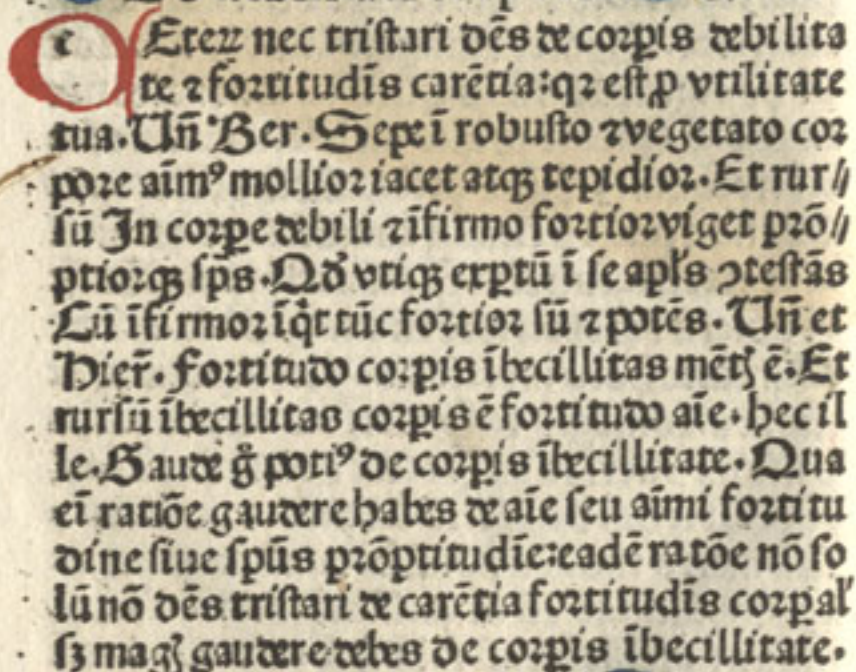 CEterꝝ nec tristari dēs de corꝑis debilita
te ⁊ fortitudīs carētia: qꝛ est ꝓ vtilitate
tua. Uñ Ber. Sepe ī robusto ⁊ vegetato cor
pore aīmꝰ mollior iacet atqꝫ tepidior. Et rur⸗
sū In corꝑe debili ⁊ īfirmo fortior viget prō⸗
ptiorqꝫ sp̄s. Qd̄ vtiqꝫ exꝑtū ī se apl̄s ꝯtestās
Cū īfirmor īq̇t tūc fortior sū ⁊ potēs. Uñ et
Hier̄. Fortitudo corꝑis ībecillitas mētꝭ ē. Et
rursū ībecillitas corꝑis ē fortitudo aīe. hec il
le. Gaude g̊ potiꝰ de corꝑis ībecillitate. Qua
eī ratiōe gaudere habes de aīe seu aīmi fortitu
dine siue spūs prōptitudīe: eadē ratōe nō so
lū nō dēs tristari de carētia fortitudīs corꝑal'
sꝫ magꝭ gaudere debes de corꝑis ībecillitate.